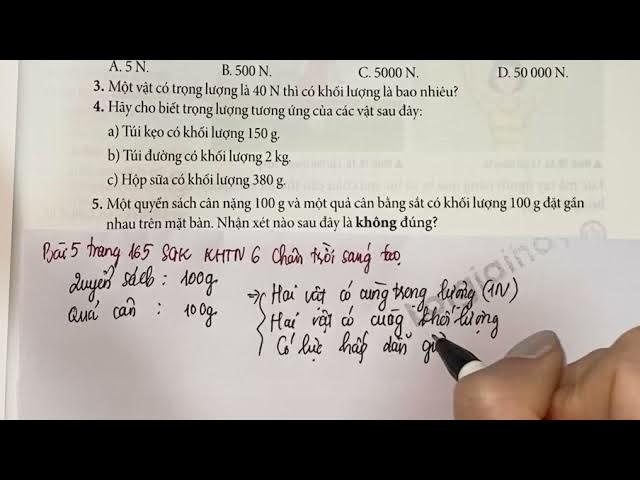 A. 5 N. B. 500 N. C. 5000 N. D. 50 000 N.
3. Một vật có trọng lượng là 40 N thì có khối lượng là bao nhiêu?
4. Hãy cho biết trọng lượng tương ứng của các vật sau đây:
a) Túi kẹo có khối lượng 150 g.
b) Túi đường có khối lượng 2 kg.
c) Hộp sữa có khối lượng 380 g.
5. Một quyển sách cân nặng 100 g và một quả cân bằng sắt có khối lượng 100 g đặt gần
nhau trên mặt bàn. Nhận xét nào sau đây là không đúng?
Bài 5 trang 165 SGK KHTN 6 Chân trời sáng tạo
Quyển sách : 100g
Quả cân : 100g
=> Hai vật có cùng trọng lượng (1N)
Hai vật có cùng khối lượng
Có lực hấp dẫn